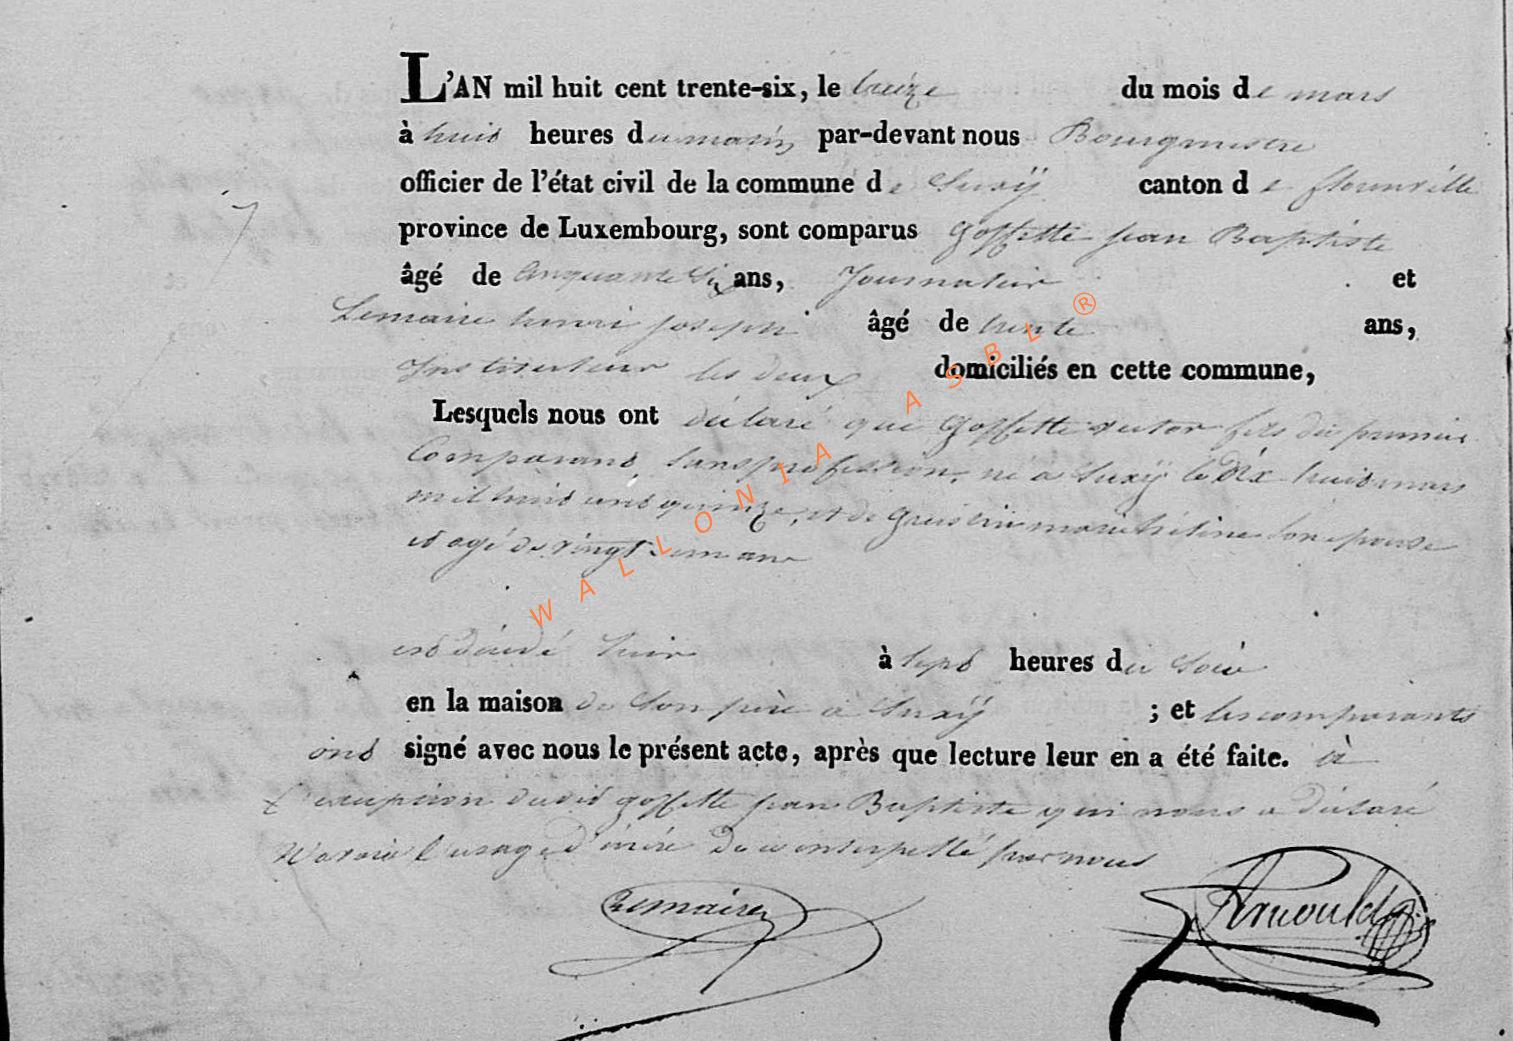 L'AN mil huit cent trente-six, le treize du mois de mars
à huit heures du matin par-devant nous Bourgmestre
officier de l'état civil de la commune de Suxÿ canton de florenville
province de Luxembourg, sont comparus Goffette jean Baptiste
âgé de Cinquante Six ans, Journalier et
Lemaire henri joseph âgé de trente ans,
Instituteur les deux domiciliés en cette commune,
Lesquels nous ont déclaré que Goffette victor fils du premier
Comparant, Sans profession, né à Suxÿ le Dix huit mars
mil huit cent quinze, et de marie son epouse
et agé de vingt un ans
est décédé hier à Sept heures du Soir
en la maison de Son père à Suxÿ ; et les comparants
ont signé avec nous le présent acte, après que lecture leur en a été faite. à
L'exception dudit goffette jean Baptiste qui nous a déclaré
N'avoir l'usage d'écrire De ce interpellé par nous
Lemaire Arnould
WALLONIA ASBL ®